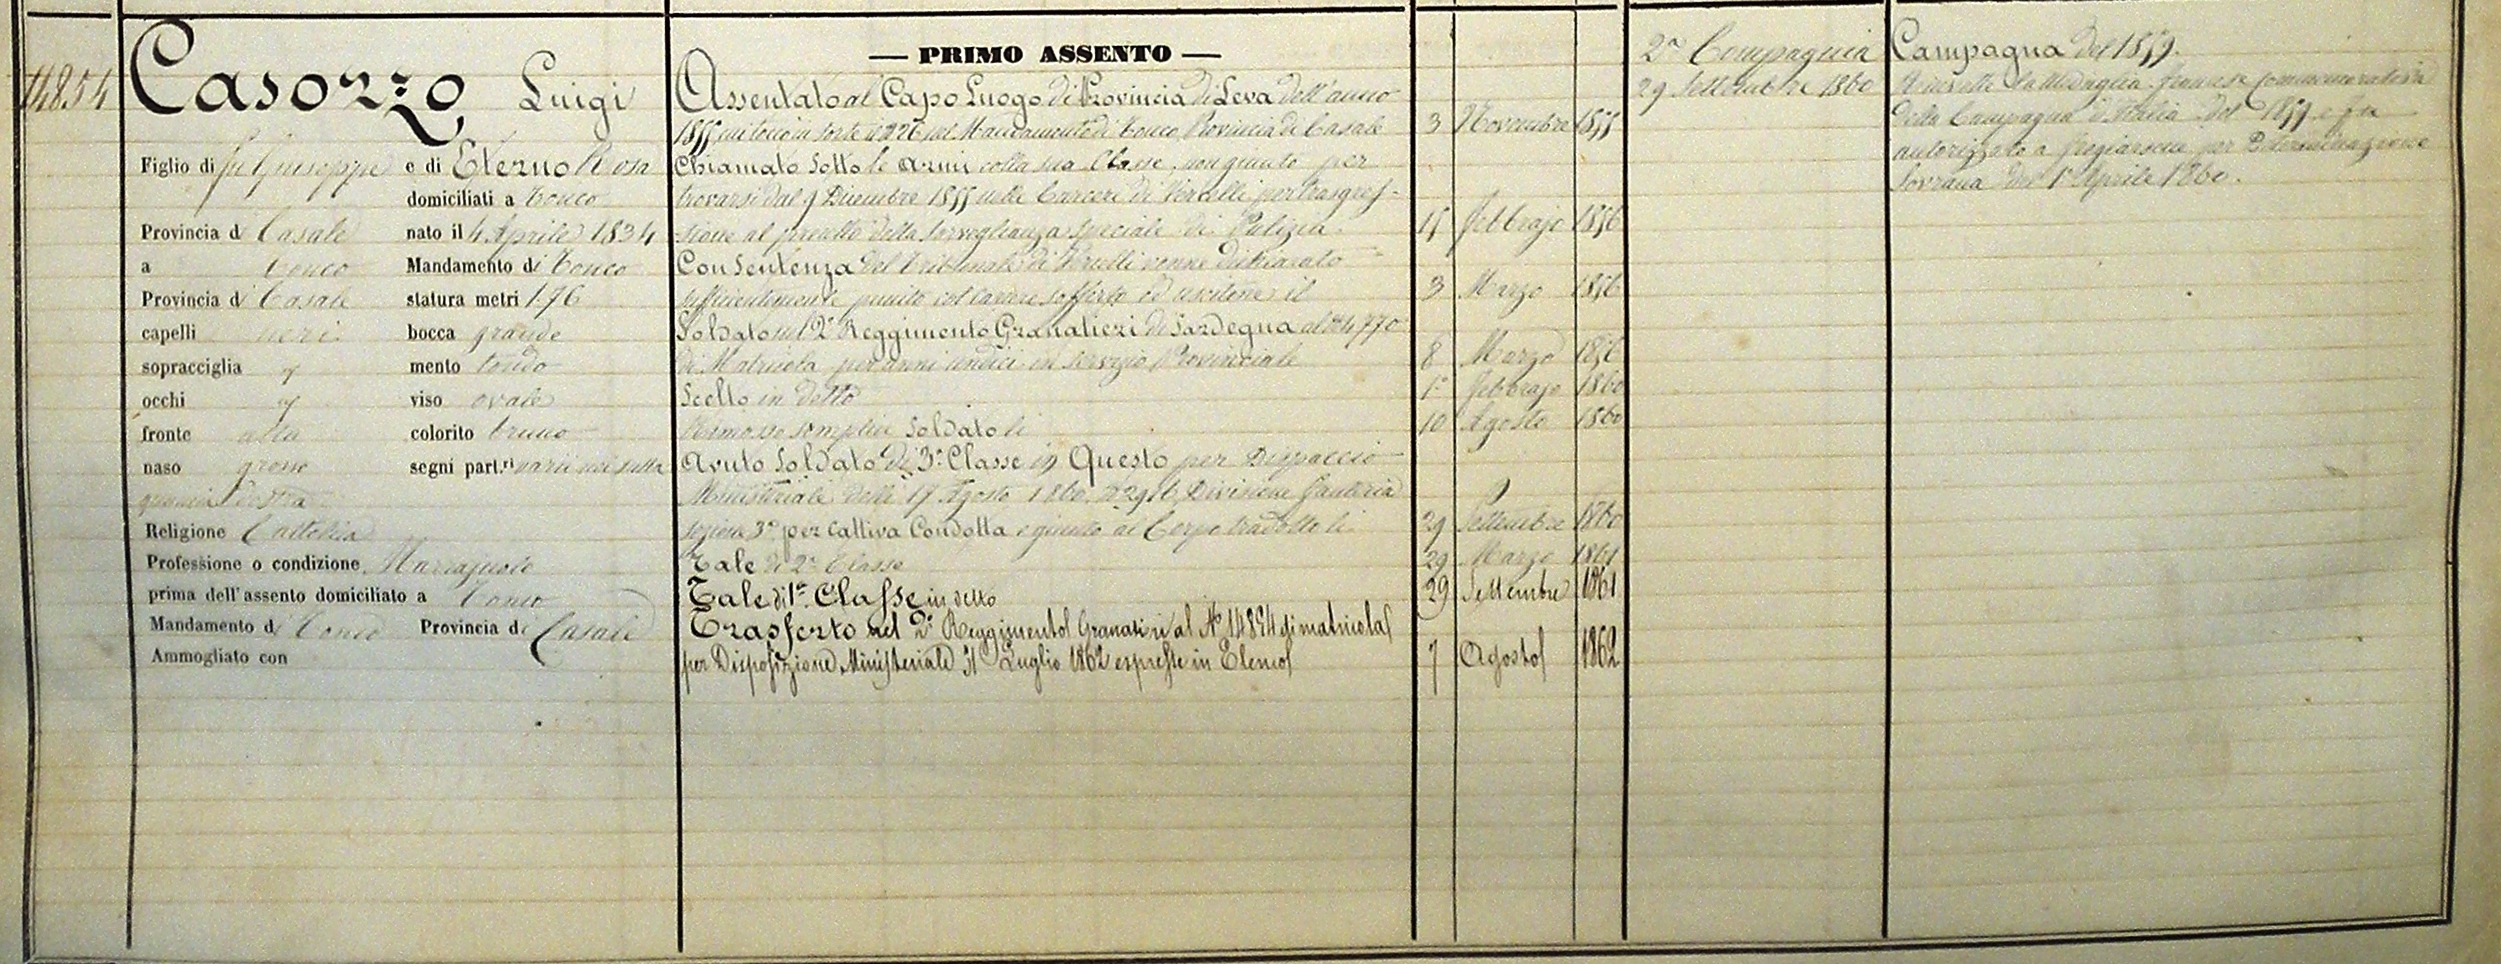 14854
Casozzo Luigi
Figlio di fu Giuseppe e di Eterno Rosa
domiciliati a Tonco
Provincia di Casale nato il 4 Aprile 1834
a Tonco Mandamento di Tonco
Provincia di Casale statura metri 1.76
capelli neri bocca grande
sopracciglia " mento tondo
occhi " viso ovale
fronte alta colorito bruno
naso grosso segni part.ri varii nei sulla
guancia destra
Religione Cattolica
Professione o condizione
prima dell'assento domiciliato a Tonco
Mandamento di Tonco Provincia di Casale
Ammogliato con
— PRIMO ASSENTO —
Assentato al Capo Luogo di Provincia di Leva dell'anno
1855 cui toccò in sorte il N 26 nel Mandamento di Tonco Provincia di Casale 3 Novembre 1855
Chiamato sotto le armi colla sua Classe, non giunto per
trovarsi dal 9 Dicembre 1855 nelle Carceri di Vercelli per trasgres-
sione al precetto della sorveglianza speciale di Pulizia. 15 Febbrajo 1856
Con Sentenza del Tribunale di Vercelli venne dichiarato
sufficientemente punito col carcere sofferto ed uscitone il 3 Marzo 1856
Soldato nel 2° Reggimento Granatieri di Sardegna al N 4770
di Matricola per anni undici in servizio Provinciale 8 Marzo 1856
Scelto in detto 1° Febbrajo 1860
Rimosso semplice Soldato li 10 Agosto 1860
Avuto Soldato di 3a Classe in Questo per Dispaccio
Ministeriale delli 17 Agosto 1860 N 2916 Divisione Fanteria
sezione 3a per Cattiva Condotta e giunto al Corpo tradotto li 29 Settembre 1860
Tale di 2a Classe 29 Marzo 1861
Tale di 1a Classe in detto 29 Settembre 1861
Trasferto nel 2° Reggimento Granatieri al N° 14894 di matricola
per Disposizione Ministeriale 31 Luglio 1862 espresse in Elenco 7 Agosto 1862
2a Compagnia
29 Settembre 1860
Campagna del 1859.
Ricevette la Medaglia francese commemorativa
della Campagna d'Italia del 1859 e fu
autorizzato a fregiarsene per Determinazione
Sovrana del 1° Aprile 1860.